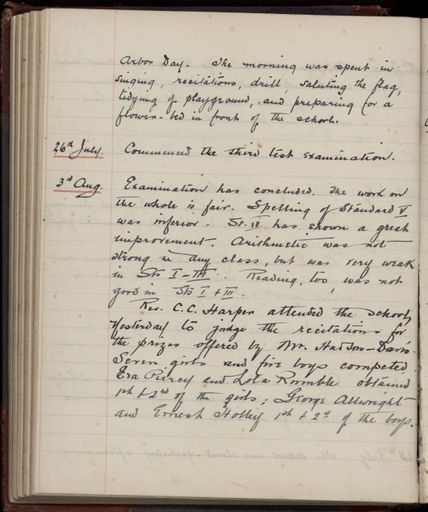 Arbor Day. The morning was spent in
singing, recitations, drill, saluting the flag,
tidying of playground, and preparing for a
flower-bed in front of the school.
26th July. Commenced the third test examination.
3rd Aug. Examination has concluded. The work on
the whole is fair. Spelling of Standard V
was inferior. St. IV has shown a great
improvement. Arithmetic was not
strong in any class, but was very weak
in Sts I-III. Reading, too, was not
good in Sts I & III.
Rev. C.C. Harper attended the school
yesterday to judge the recitations for
the prizes offered by Mr. Hudson-Davis.
Seven girls and five boys competed.
Eva Piercy and Lota Rumble obtained
1st & 2nd of the girls; George Allwright
and Ernest Holley 1st & 2d of the boys.